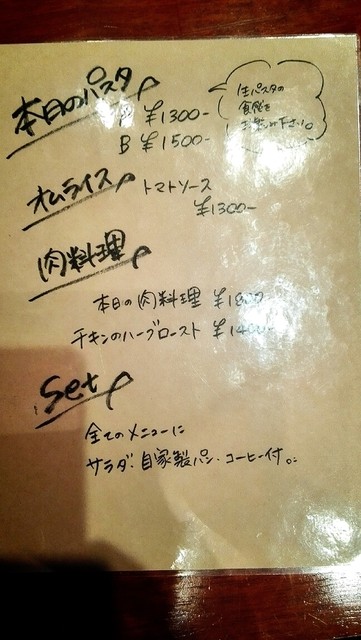 本日のパスタ
A ¥1300-
B ¥1500-
生パスタの
食感を
下さい。
オムライス トマトソース
¥1300-
肉料理
本日の肉料理 ¥1800-
チキンのハーブロースト ¥1400-
Set
全てのメニューに
サラダ・自家製パン・コーヒー付。